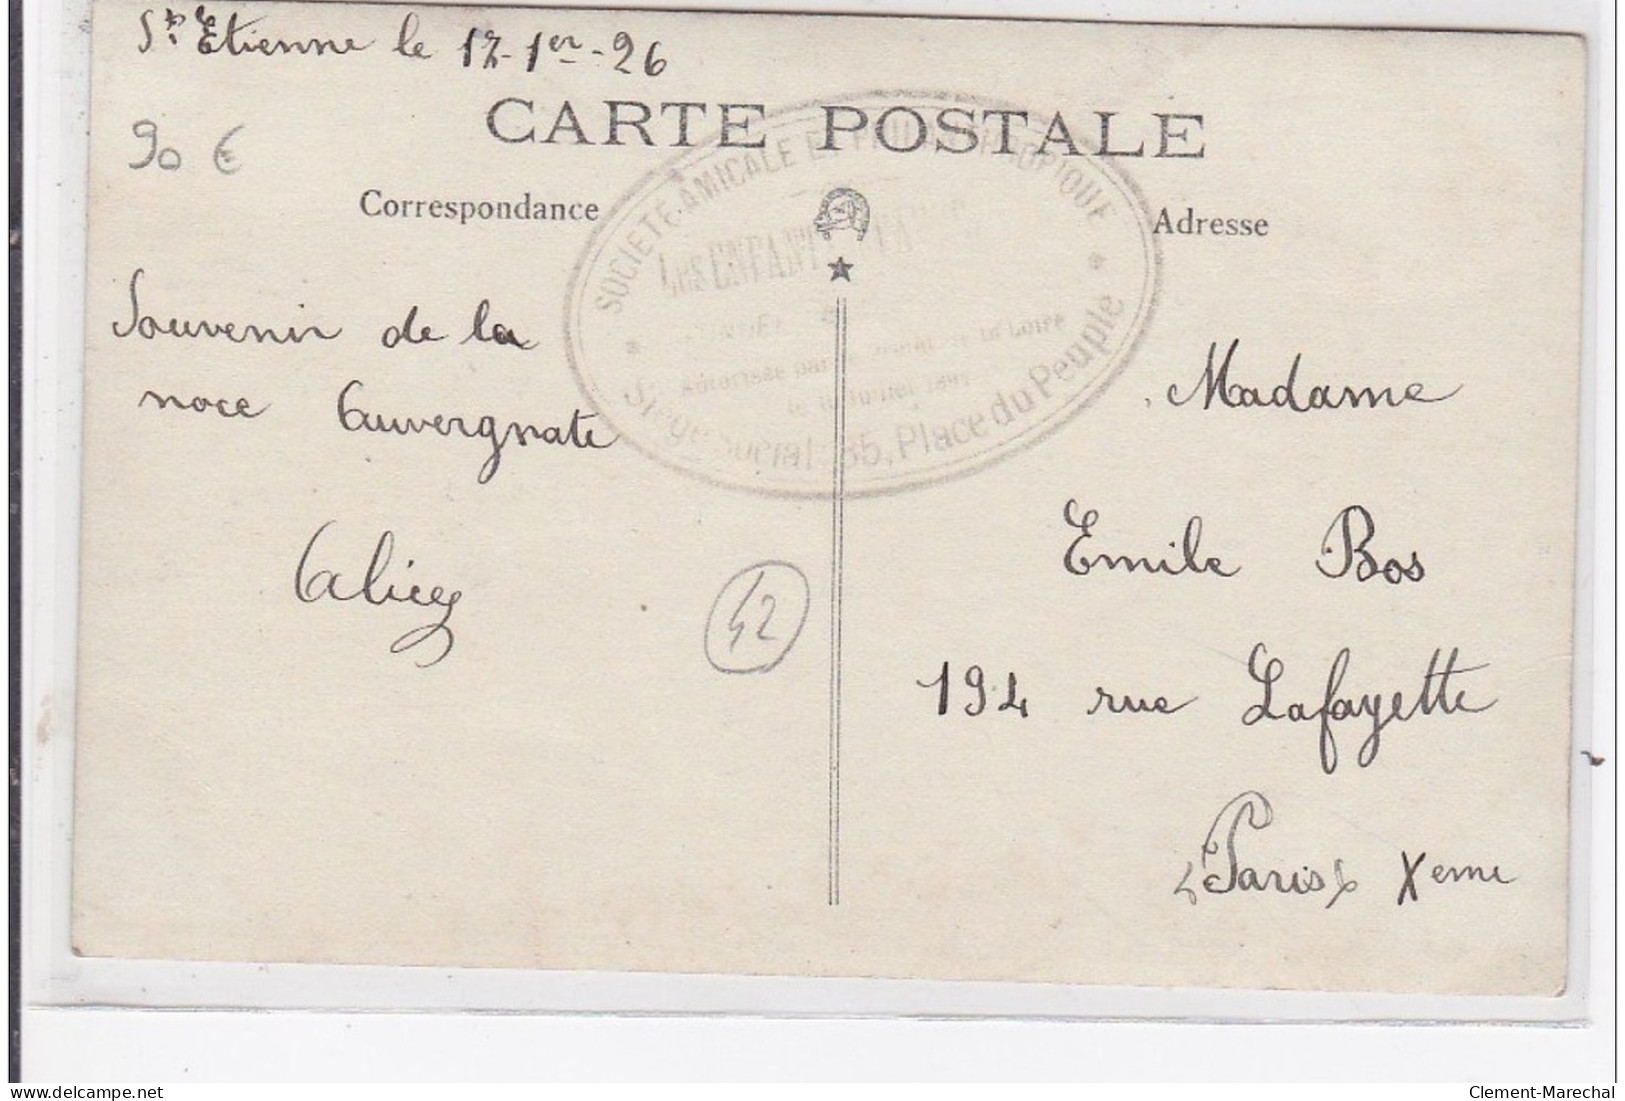 St. Etienne le 17-1er-26
CARTE POSTALE
90 €
Correspondance
Adresse
SOCIETE AMICALE ET PHILANTHROPIQUE
Les ENFANTS
Autorisée par de la Loire
le Juillet
Siège Social: 35, Place du Peuple
Souvenir de la
noce Auvergnate
Alice
42
Madame
Emile Bos
194 rue Lafayette
Paris Xeme
delcampe.net
Clement-Marechal